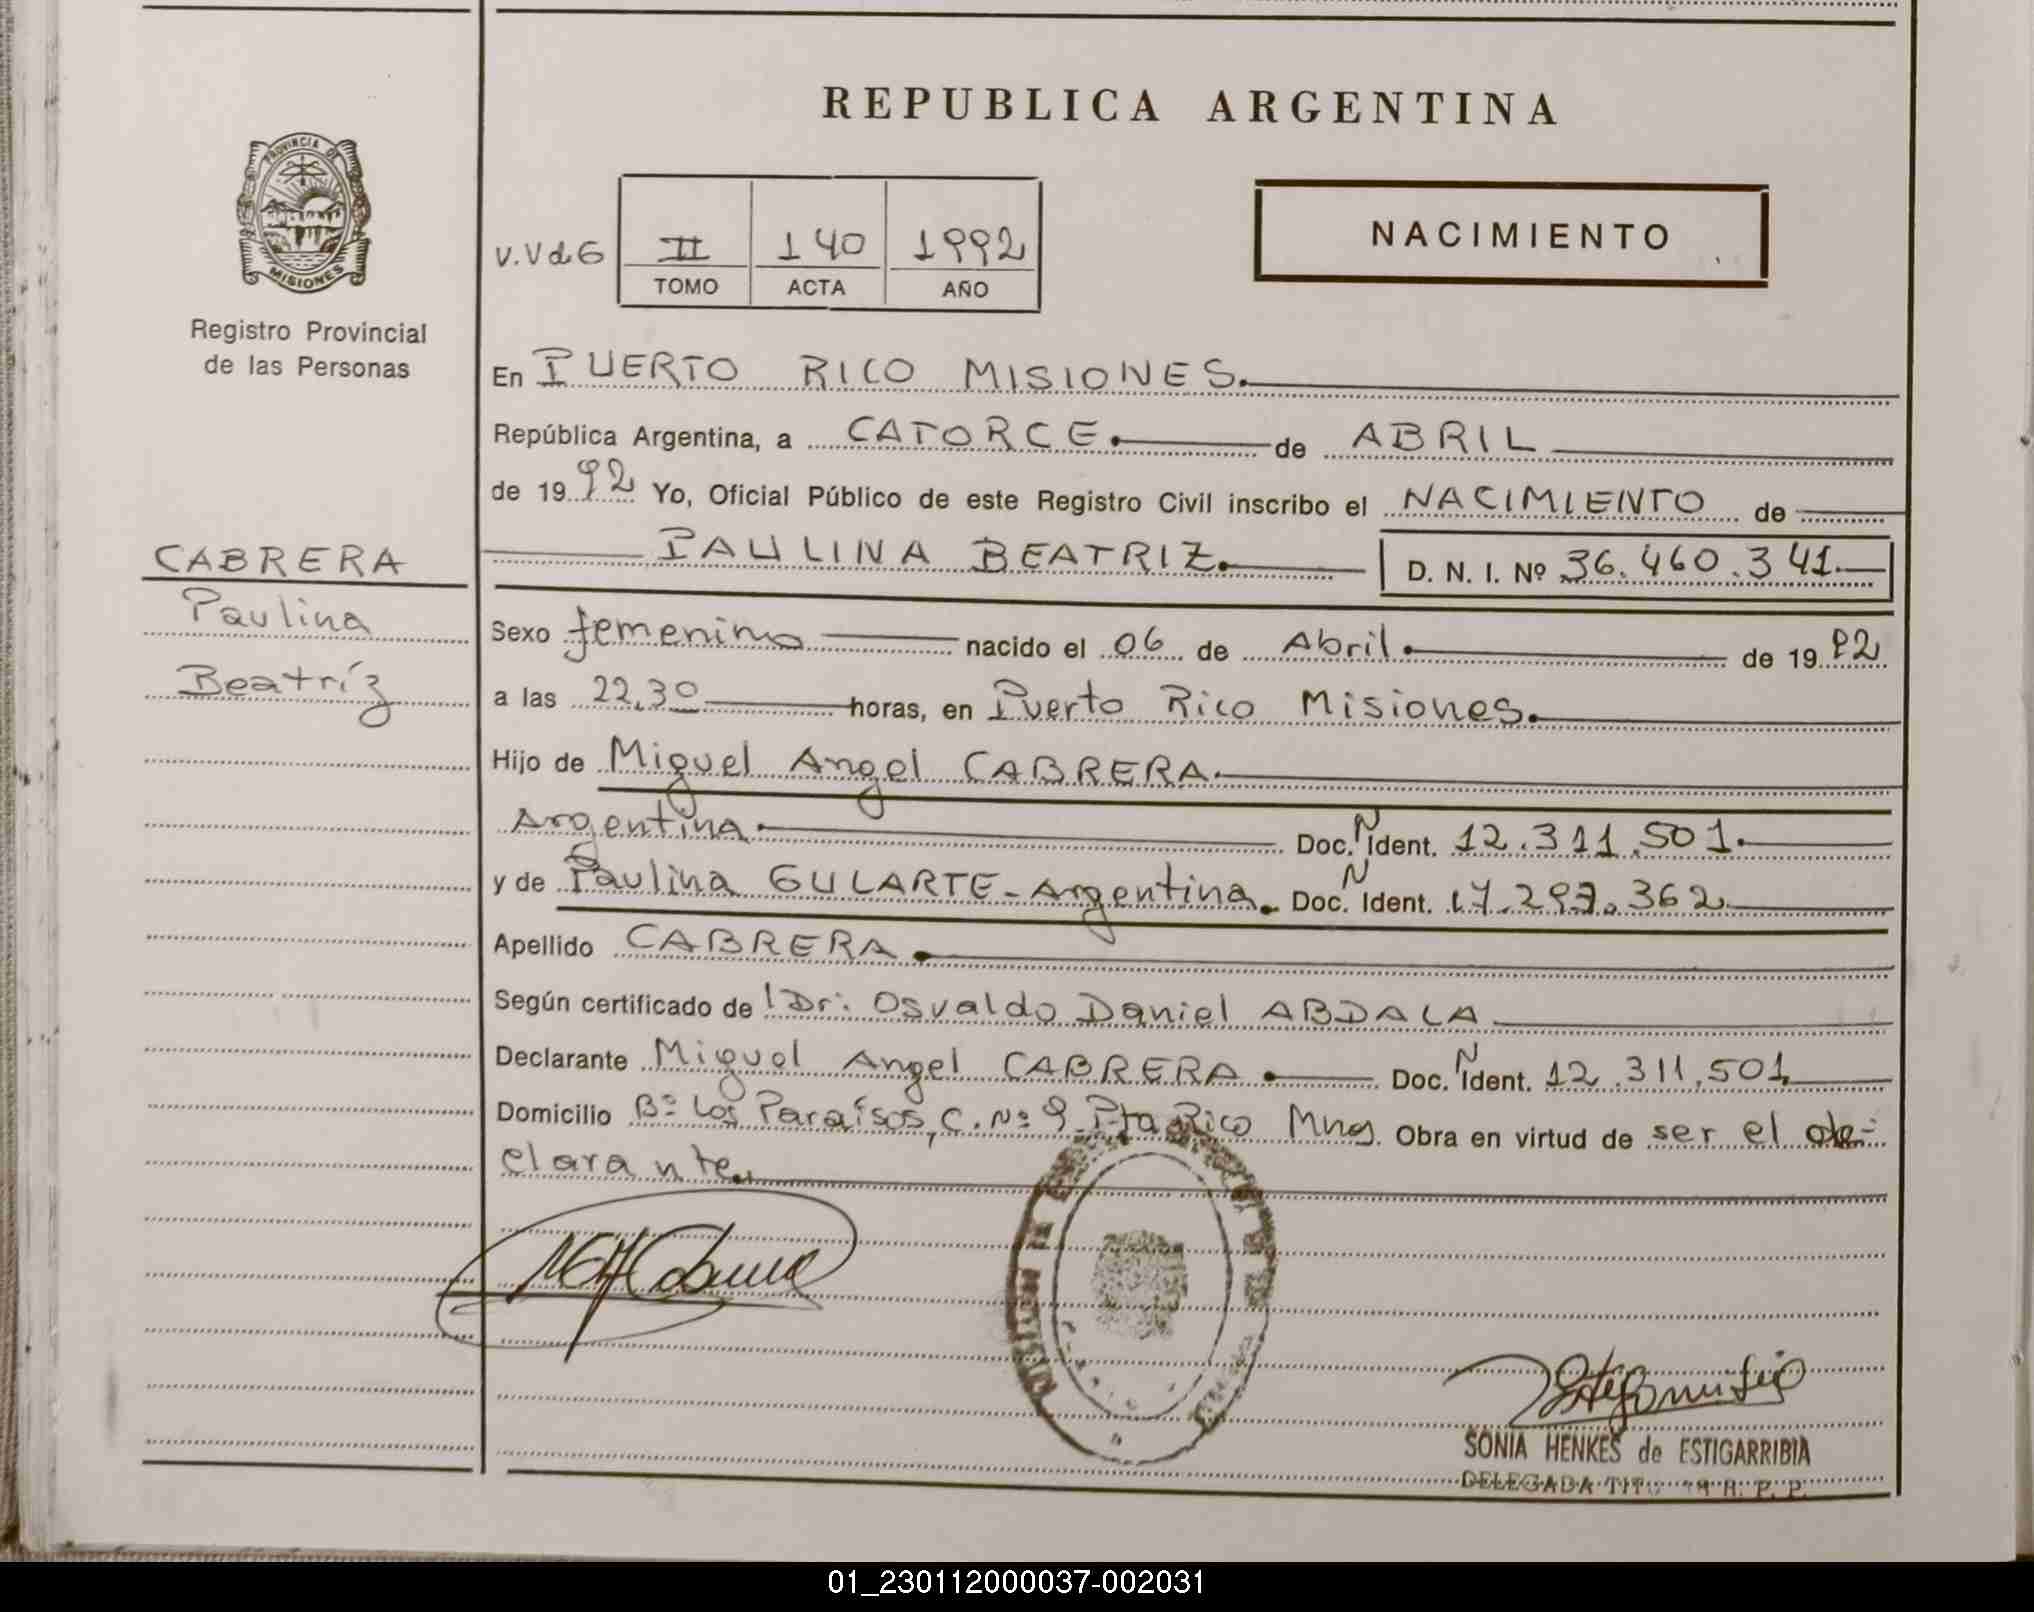 REPUBLICA ARGENTINA
PROVINCIA DE
MISIONES
Registro Provincial
de las Personas
v.VdG II 140 1992
TOMO ACTA AÑO
NACIMIENTO
En PUERTO RICO MISIONES.
República Argentina, a CATORCE. de ABRIL
de 1992 Yo, Oficial Público de este Registro Civil inscribo el NACIMIENTO de
PAULINA BEATRIZ. D. N. I. Nº 36.460.341.
CABRERA
Paulina
Beatríz
Sexo femenino nacido el 06 de Abril. de 1992
a las 22,30 horas, en Puerto Rico Misiones.
Hijo de Miguel Angel CABRERA.
Argentina. Doc. N Ident. 12.311.501.
y de Paulina GULARTE - Argentina. Doc. N Ident. 17.297.362
Apellido CABRERA.
Según certificado de Dr. Osvaldo Daniel ABDALA
Declarante Miguel Angel CABRERA. Doc. N Ident. 12.311.501
Domicilio Bº Los Paraísos, C. Nº 9 Pto Rico Mnes. Obra en virtud de ser el de-
clarante.
SONIA HENKES de ESTIGARRIBIA
DELEGADA R. P. P.
01_230112000037-002031